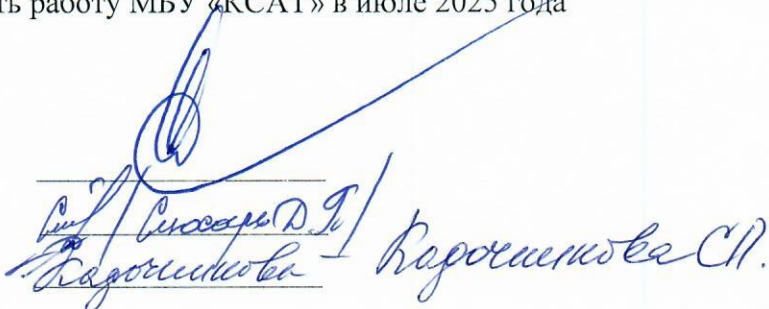 ть работу МБУ «КСАТ» в июле 2025 года
Слюсарь Д.П./
Кадочникова – Кадочникова С.П.